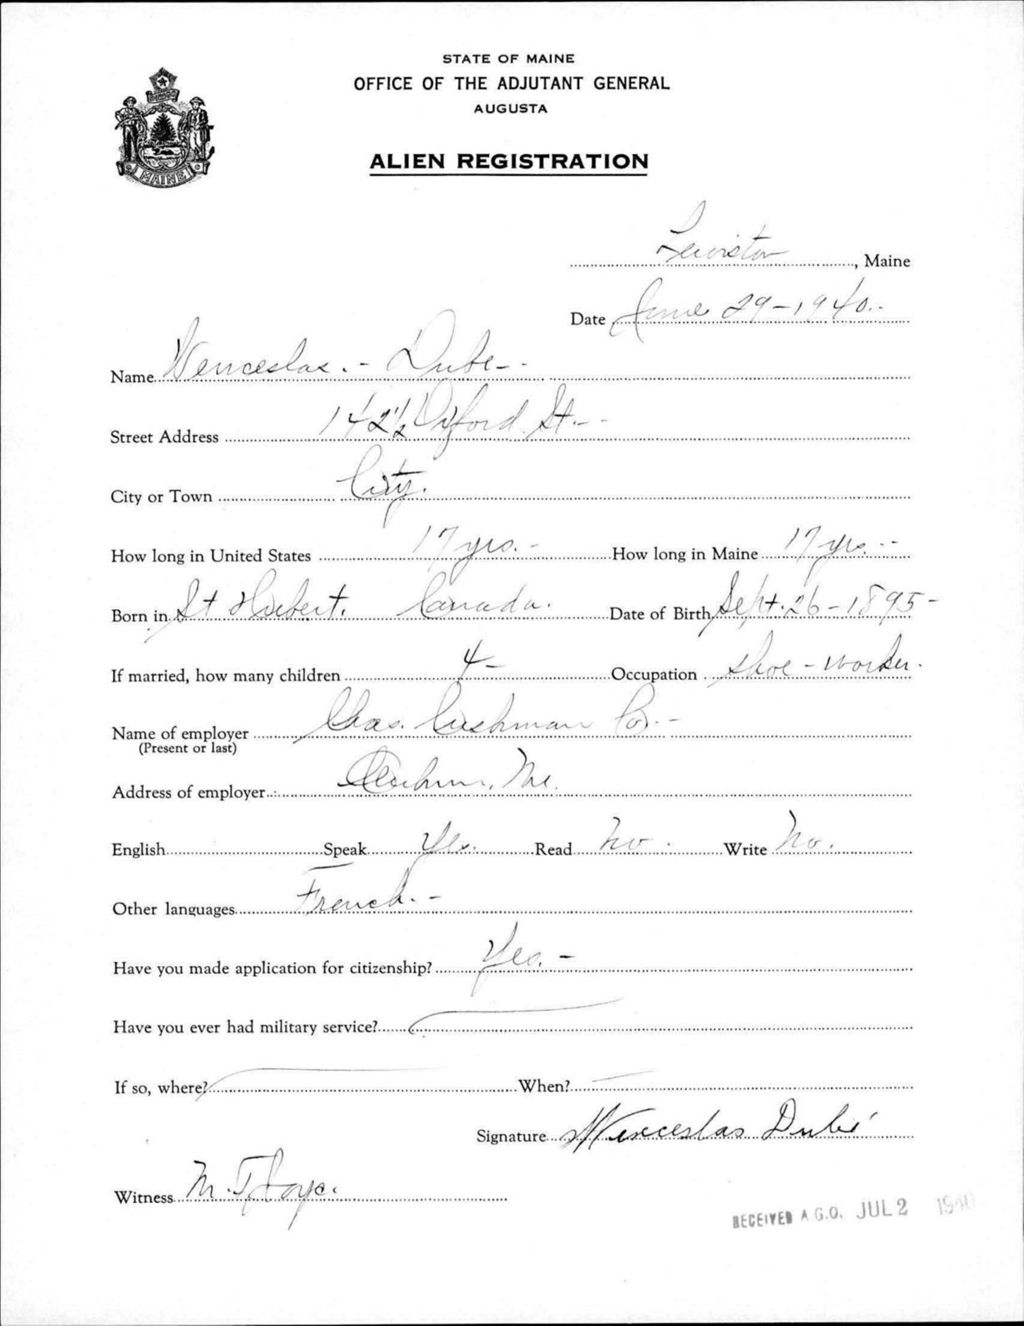 STATE OF MAINE
OFFICE OF THE ADJUTANT GENERAL
AUGUSTA
MAINE
ALIEN REGISTRATION
Lewiston, Maine
Date June 29-1940.-
Name Wenceslas.- Dube-
Street Address 142½ Oxford St.-
City or Town City.
How long in United States 17 yrs.- How long in Maine 17 yrs.-
Born in St Hubert. Canada. Date of Birth Sept. 26-1895-
If married, how many children 4- Occupation Shoe-worker.
Name of employer Chas. Cushman Co.-
(Present or last)
Address of employer Auburn, Me.
English Speak Yes. Read No. Write No.
Other languages French.-
Have you made application for citizenship? Yes.-
Have you ever had military service?
If so, where? When?
Signature Wenceslas Dubé
Witness M.
RECEIVED A.G.O. JUL 2 1940